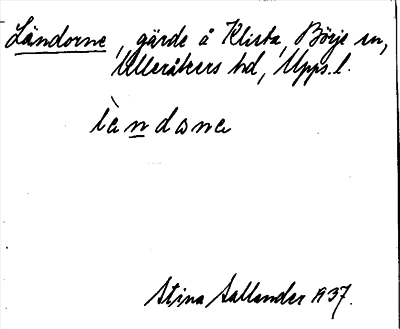 Ländorne, gärde å Klista, Börje sn,
Ulleråkers hd, Upps. l.
làndωna
Stina Sallander 1937.